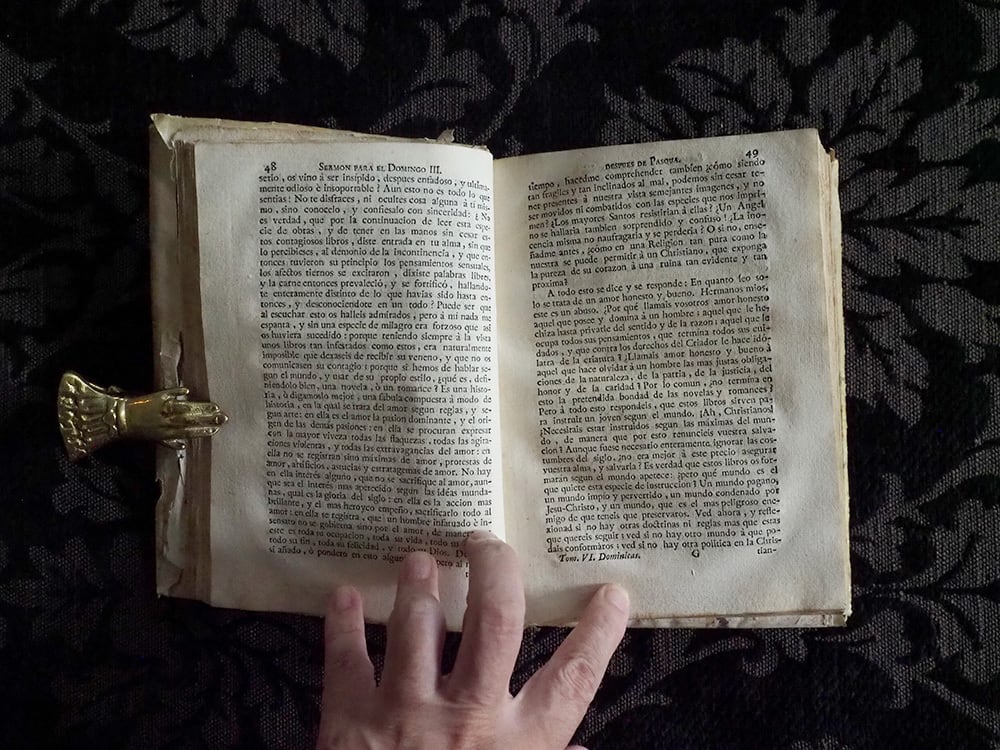 48 SERMON PARA EL DOMINGO III.
serio, os vino à ser insipido, despues enfadoso, y ultima-
mente odioso è insoportable? Aun esto no es todo lo que
sentias: No te disfraces, ni ocultes cosa alguna à ti mis-
mo, sino conocelo, y confiesalo con sinceridad: ¿No
es verdad, que por la continuacion de leer esta espe-
cie de obras, y de tener en las manos sin cesar es-
tos contagiosos libros, diste entrada en tu alma, sin que
lo percibieses, al demonio de la incontinencia, y que en-
tonces tuvieron su principio los pensamientos sensuales,
los afectos tiernos se excitaron, dixiste palabras libres,
y la carne entonces prevaleció, y se fortificó, hallando-
te enteramente distinto de lo que havías sido hasta en-
tonces, y desconociendote en un todo? Puede ser que
al escuchar esto os halleis admirados, pero à mi nada me
espanta, y sin una especie de milagro era forzoso que asi
os huviera sucedido: porque teniendo siempre à la vista
unos libros tan infestados como estos, era naturalmente
imposible que dexaseis de recibir su veneno, y que no os
comunicasen su contagio: porque si hemos de hablar se-
gun el mundo, y usar de su propio estilo, ¿qué es, defi-
niendolo bien, una novela, ò un romance? Es una histo-
ria, ò digamoslo mejor, una fabula compuesta à modo de
historia, en la qual se trata del amor segun reglas, y se-
gun arte: en ella es el amor la pasion dominante, y el ori-
gen de las demás pasiones: en ella se procuran expresar
con la mayor viveza todas las flaquezas, todas las agita-
ciones violentas, y todas las extravagancias del amor: en
ella no se registran sino máximas de amor, protestas de
amor, artificios, astucias y estratagemas de amor. No hay
en ella interés alguno, que no se sacrifique al amor, aun-
que sea el interés mas apetecido segun las idéas munda-
nas, qual es la gloria del siglo: en ella es la accion mas
brillante, y el mas heroyco empeño, sacrificarlo todo al
amor: en ella se registra, que un hombre infatuado è in-
sensato no se gobierna sino por el amor, de manera
este es toda su ocupacion, toda su vida, todo su
todo su fin, toda su felicidad, y todo su Dios.
si añado, ò pondero en esto algun pero al
DESPUES DE PASQUA. 49
tiempo, hacedme comprehender tambien ¿cómo siendo
tan fragiles y tan inclinados al mal, podemos sin cesar te-
ner presentes à nuestra vista semejantes imagenes, y no
ser movidos ni combatidos con las especies que nos impri-
men? ¿Los mayores Santos resistirían à ellas? ¿Un Angel
no se hallaria tambien sorprendido y confuso? ¿La ino-
cencia misma no naufragaría y se perdería? O si no, ense-
ñadme antes, ¿cómo en una Religion tan pura como la
nuestra se puede permitir à un Christiano, que exponga
la pureza de su corazón à una ruina tan evidente y tan
proxima?
A todo esto se dice y se responde: En quanto leo so-
lo se trata de un amor honesto y bueno. Hermanos mios,
este es un abuso. ¿Por qué llamais vosotros amor honesto
aquel que posee y domina à un hombre; aquel que le he-
chiza hasta privarle del sentido y de la razon; aquel que le
ocupa todos sus pensamientos, que termina todos sus cui-
dados, y que contra los derechos del Criador le hace idó-
latra de la criatura? ¿Llamais amor honesto y bueno à
aquel que hace olvidar à un hombre las mas justas obliga-
ciones de la naturaleza, de la patria, de la justicia, del
honor y de la caridad? Por lo comun, ¿no termina en
esto la pretendida bondad de las novelas y romances?
Pero à todo esto respondeis, que estos libros sirven pa-
ra instruir un joven segun el mundo. ¡Ah, Christianos!
¿Necesitais estar instruidos segun las máximas del mun-
do, de manera que por esto renuncieis vuestra salva-
cion? Aunque fuese necesario enteramente ignorar las cos-
tumbres del siglo, ¿no era mejor à este precio asegurar
vuestra alma, y salvarla? Es verdad que estos libros os for-
marán segun el mundo apetece: ¿pero qué mundo es el
que quiere esta especie de instruccion? Un mundo pagano,
un mundo impio y pervertido, un mundo condenado por
Jesu-Christo, y un mundo, que es el mas peligroso ene-
migo de que teneis que preservaros. Ved ahora, y refle-
xionad si no hay otras doctrinas ni reglas mas que estas
que quereis seguir: ved si no hay otro mundo à que po-
dais conformaros: ved si no hay otra politica en la Chris-
Tom. VI. Dominicas. G tian-